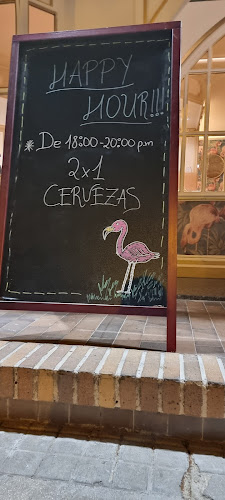 HAPPY
HOUR!!!
* De 18:00-20:00 p.m
2x1
CERVEZAS